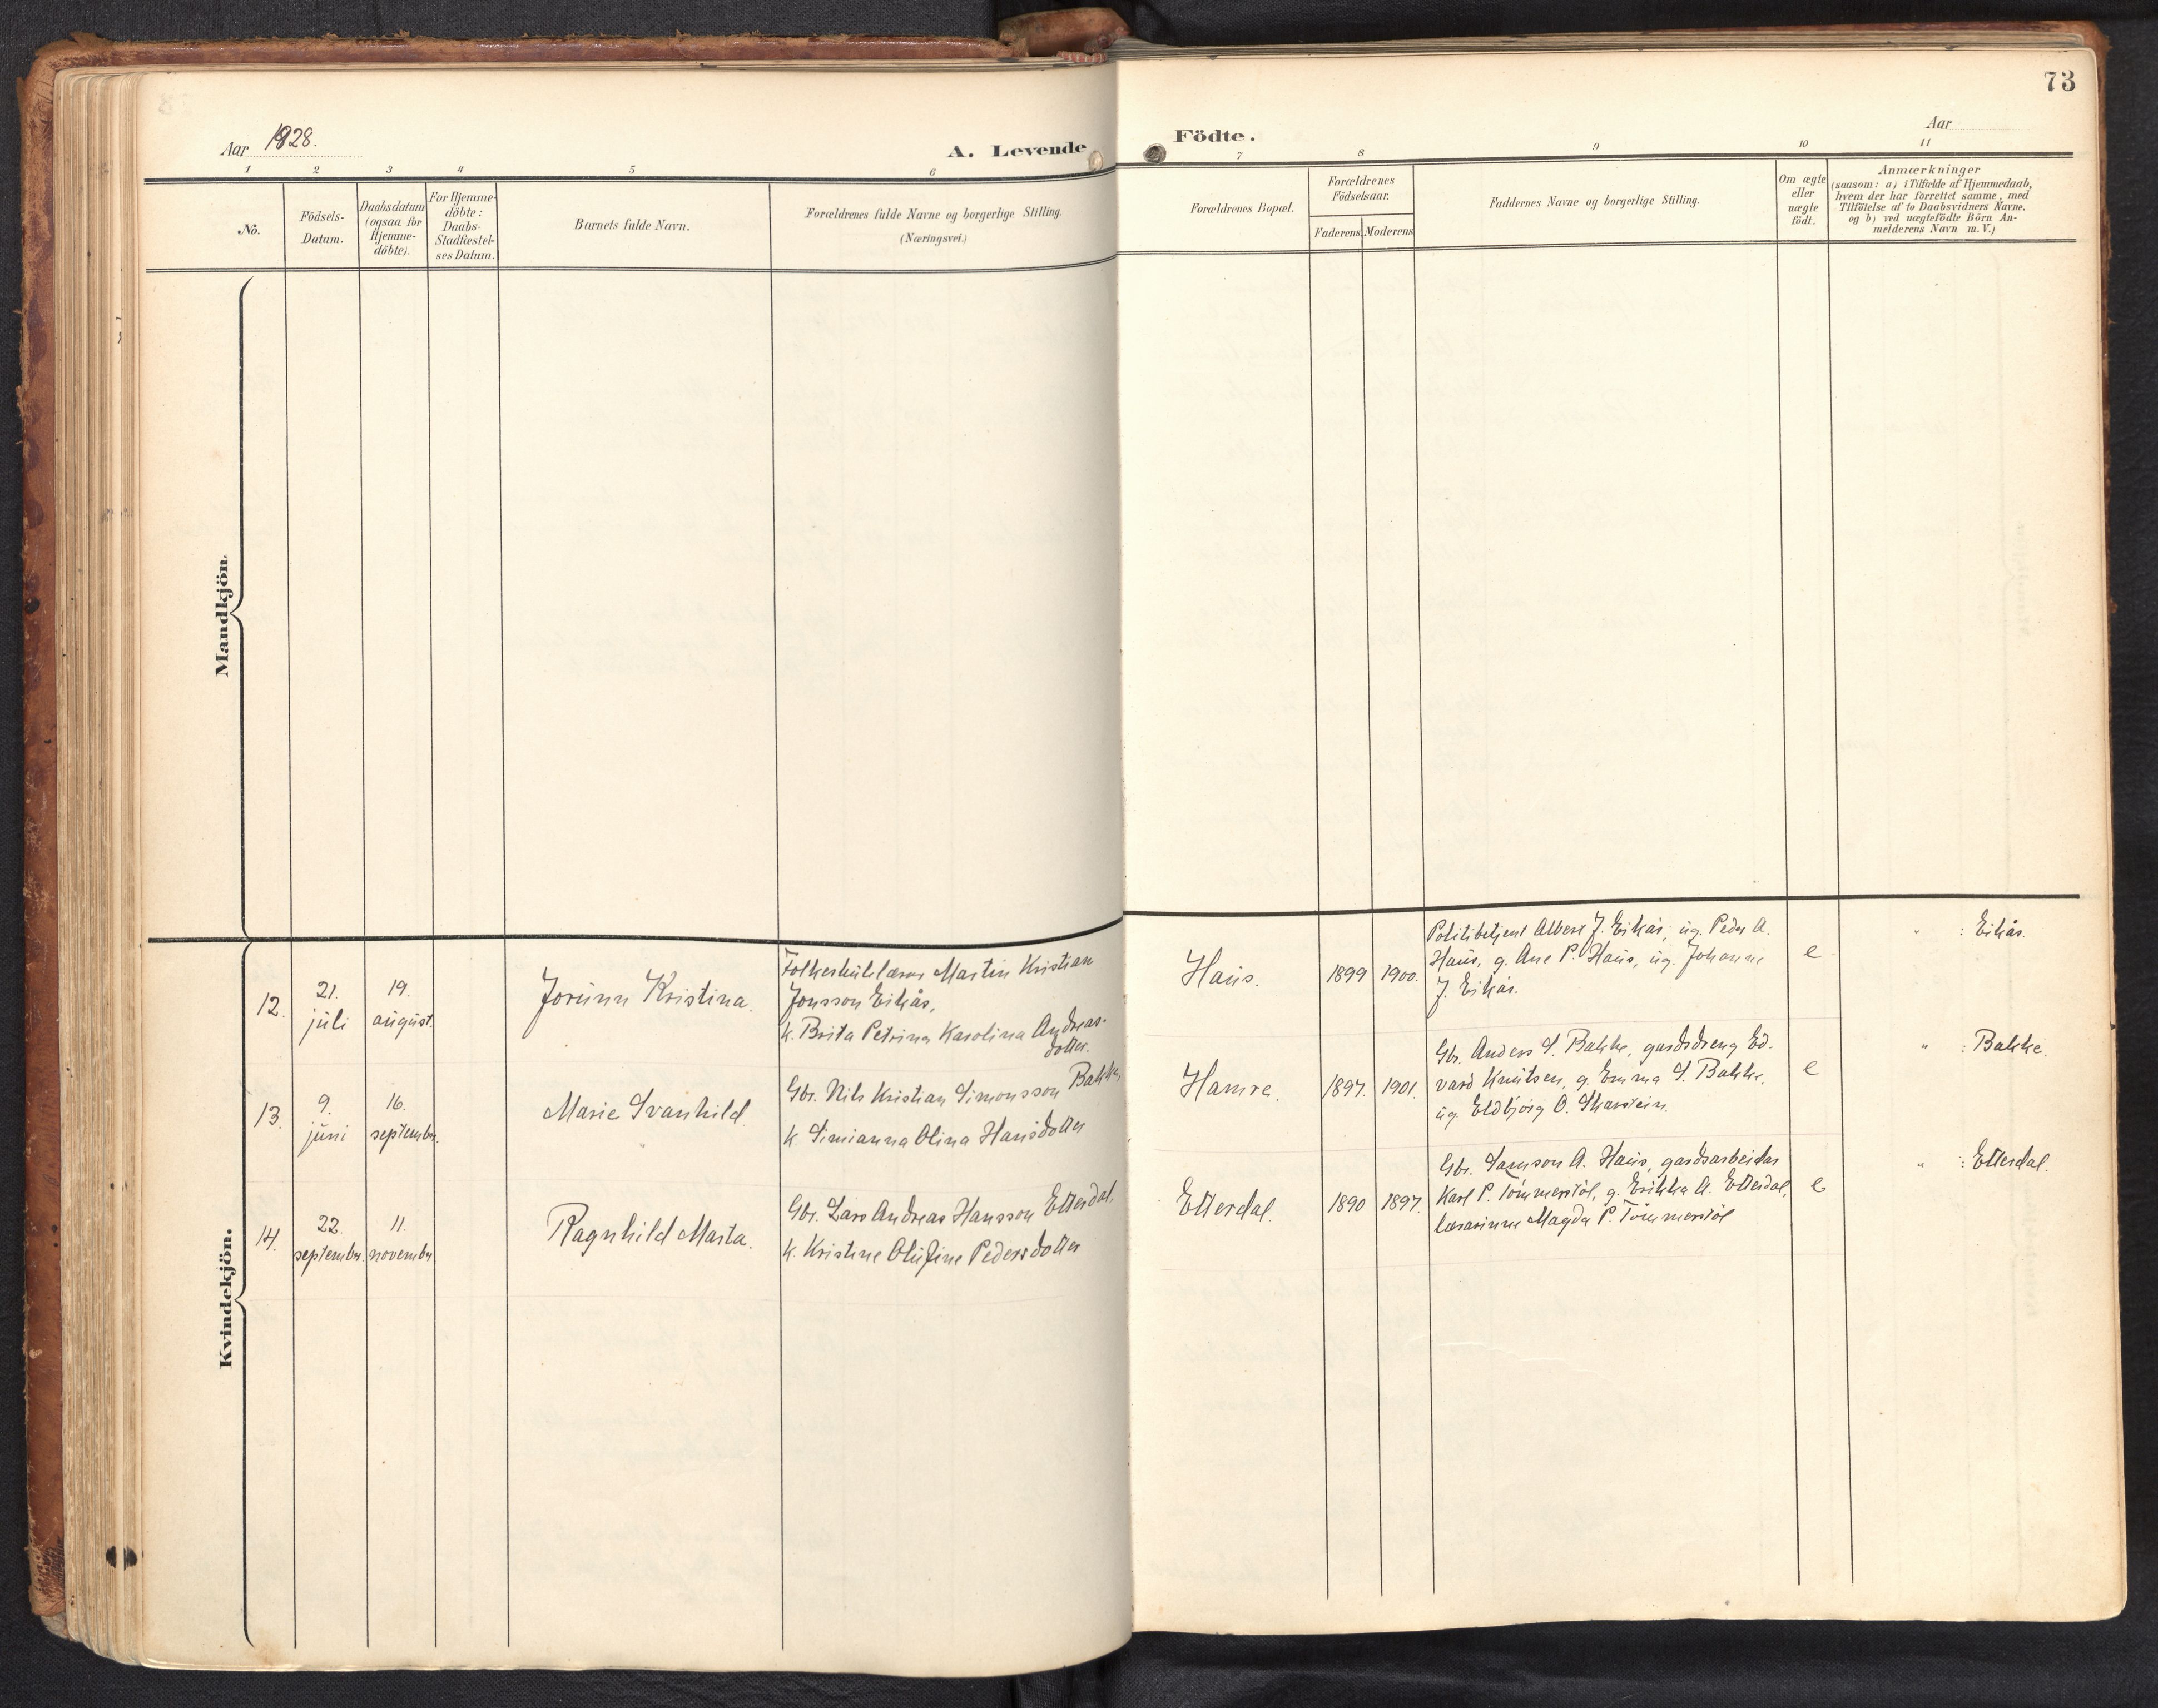 73
Aar 1928.
A. Levende
Födte.
Aar
1 2 3 4 5 6 7 8 9 10 11
No.
Födsels-
Datum.
Daabsdatum
(ogsaa for
Hjemme-
döbte).
For Hjemme-
döbte:
Daabs-
Stadfæstel-
ses Datum.
Barnets fulde Navn.
Forældrenes fulde Navne og borgerlige Stilling.
(Næringsvei.)
Forældrenes Bopæl.
Forældrenes
Födselsaar.
Faderens Moderens
Faddernes Navne og borgerlige Stilling.
Om ægte
eller
uægte
födt.
Anmærkninger
(saasom: a) i Tilfælde af Hjemmedaab,
hvem der har forrettet samme, med
Tilföielse af to Daabsvidners Navne.
og b) ved uægtefödte Börn An-
melderens Navn m. V.)
Mandkjön.
Kvindekjön.
12.
21.
juli
19.
august.
Jorunn Kristina.
Folkeskulelærar Martin Kristian
Jonsson Eikås,
k. Brita Petrina Karolina Andreas-
dotter.
Haus.
1899
1900.
Politibetjent Albert J. Eikås, ug. Peder A.
Haus, g. Ane P. Haus, ug. Johanne
J. Eikås.
e
" : Eikås.
13.
9.
juni
16.
septembr.
Marie Svanhild.
Gbr. Nils Kristian Simonsson Bakke,
k. Simianna Olina Hansdotter
Hamre.
1897.
1901.
Gbr. Anders S. Bakke, gardsdreng Ed-
vard Knutsen, g. Emma S. Bakke,
ug. Eldbjörg O. Skarstein.
e
" : Bakke.
14.
22.
septembr.
11.
novembr
Ragnhild Marta.
Gbr. Lars Andreas Hansson Etterdal,
k. Kristine Olufine Pedersdotter
Etterdal.
1890
1897.
Gbr. Samson A. Haus, gardsarbeidar
Karl P. Tömmerstöl, g. Erikka A. Etterdal,
lærarinne Magda P. Tömmerstöl
e
" : Etterdal.